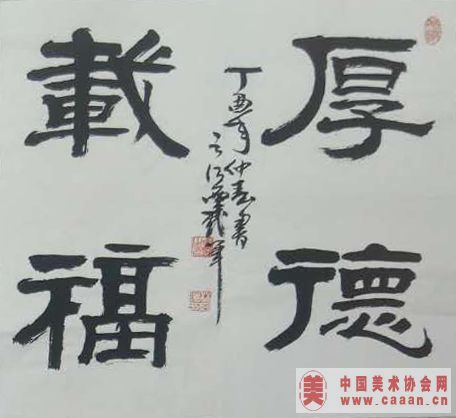 厚德
載福
丁酉年仲春書
中国美术协会网
www.caaan.cn